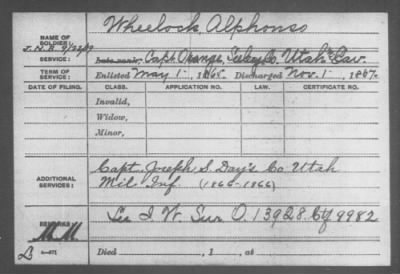 Wheelock Alphonso
NAME OF SOLDIER:
SERVICE: late rank, Capt. Orange, Co. Utah Cav.
TERM OF SERVICE: Enlisted May 1, 186 Discharged Nov. 1, 1867.
DATE OF FILING. CLASS. APPLICATION NO. LAW. CERTIFICATE NO.
Invalid,
Widow,
Minor,
ADDITIONAL SERVICES: Capt. Joseph S. Day's Co Utah
Mil Inf (1866-1866)
I. W. Sur O. 13928 Ctf 9982
REMARKS:
Died , 1 , at